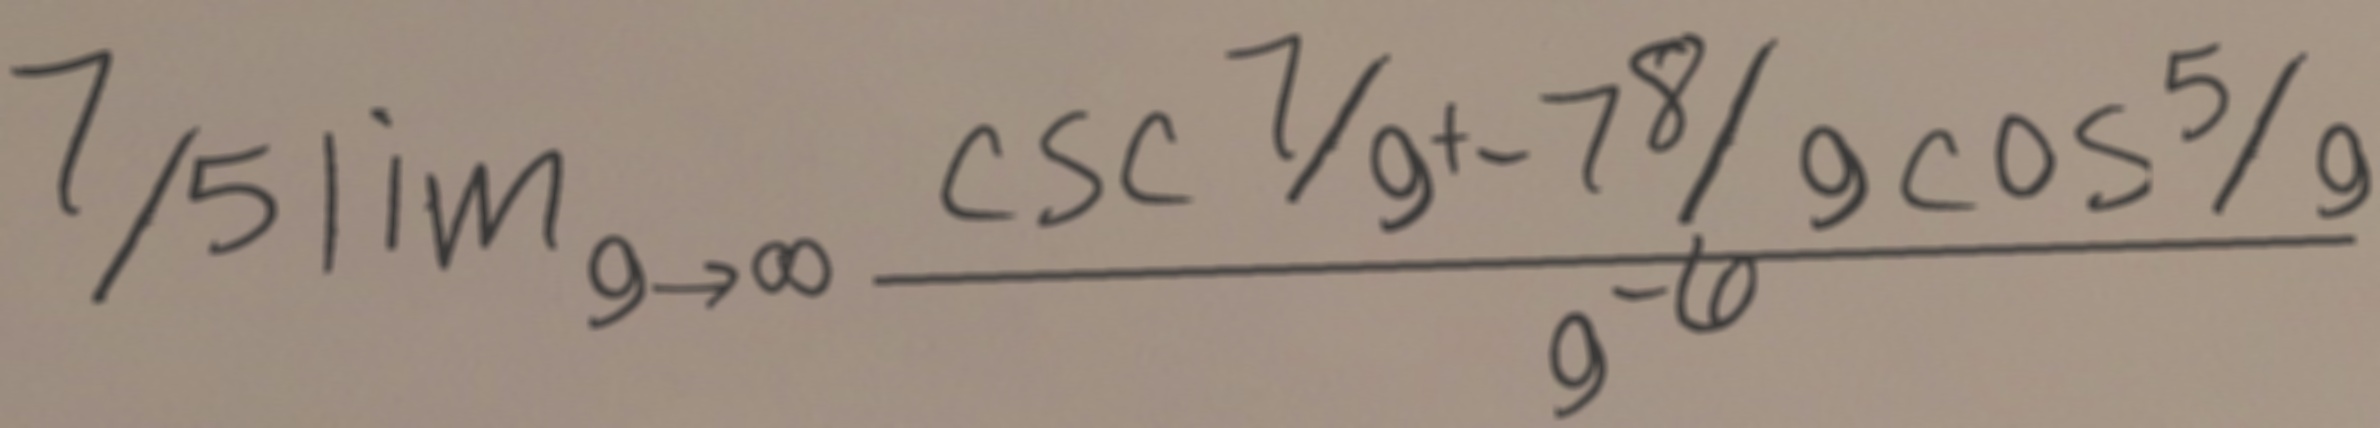 \frac{7}{5} \lim_{g \to \infty} \frac{\csc \frac{7}{g} + -7 \frac{8}{g} \cos \frac{5}{g}}{g^{-6}}